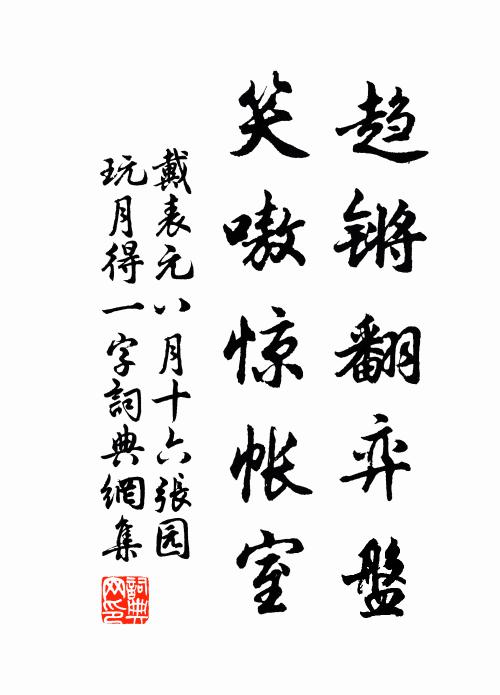 趋锵翻弈盤
笑嗷惊帐室
戴表元八月十六張园
玩月得一字詞典網集
詞典
网印